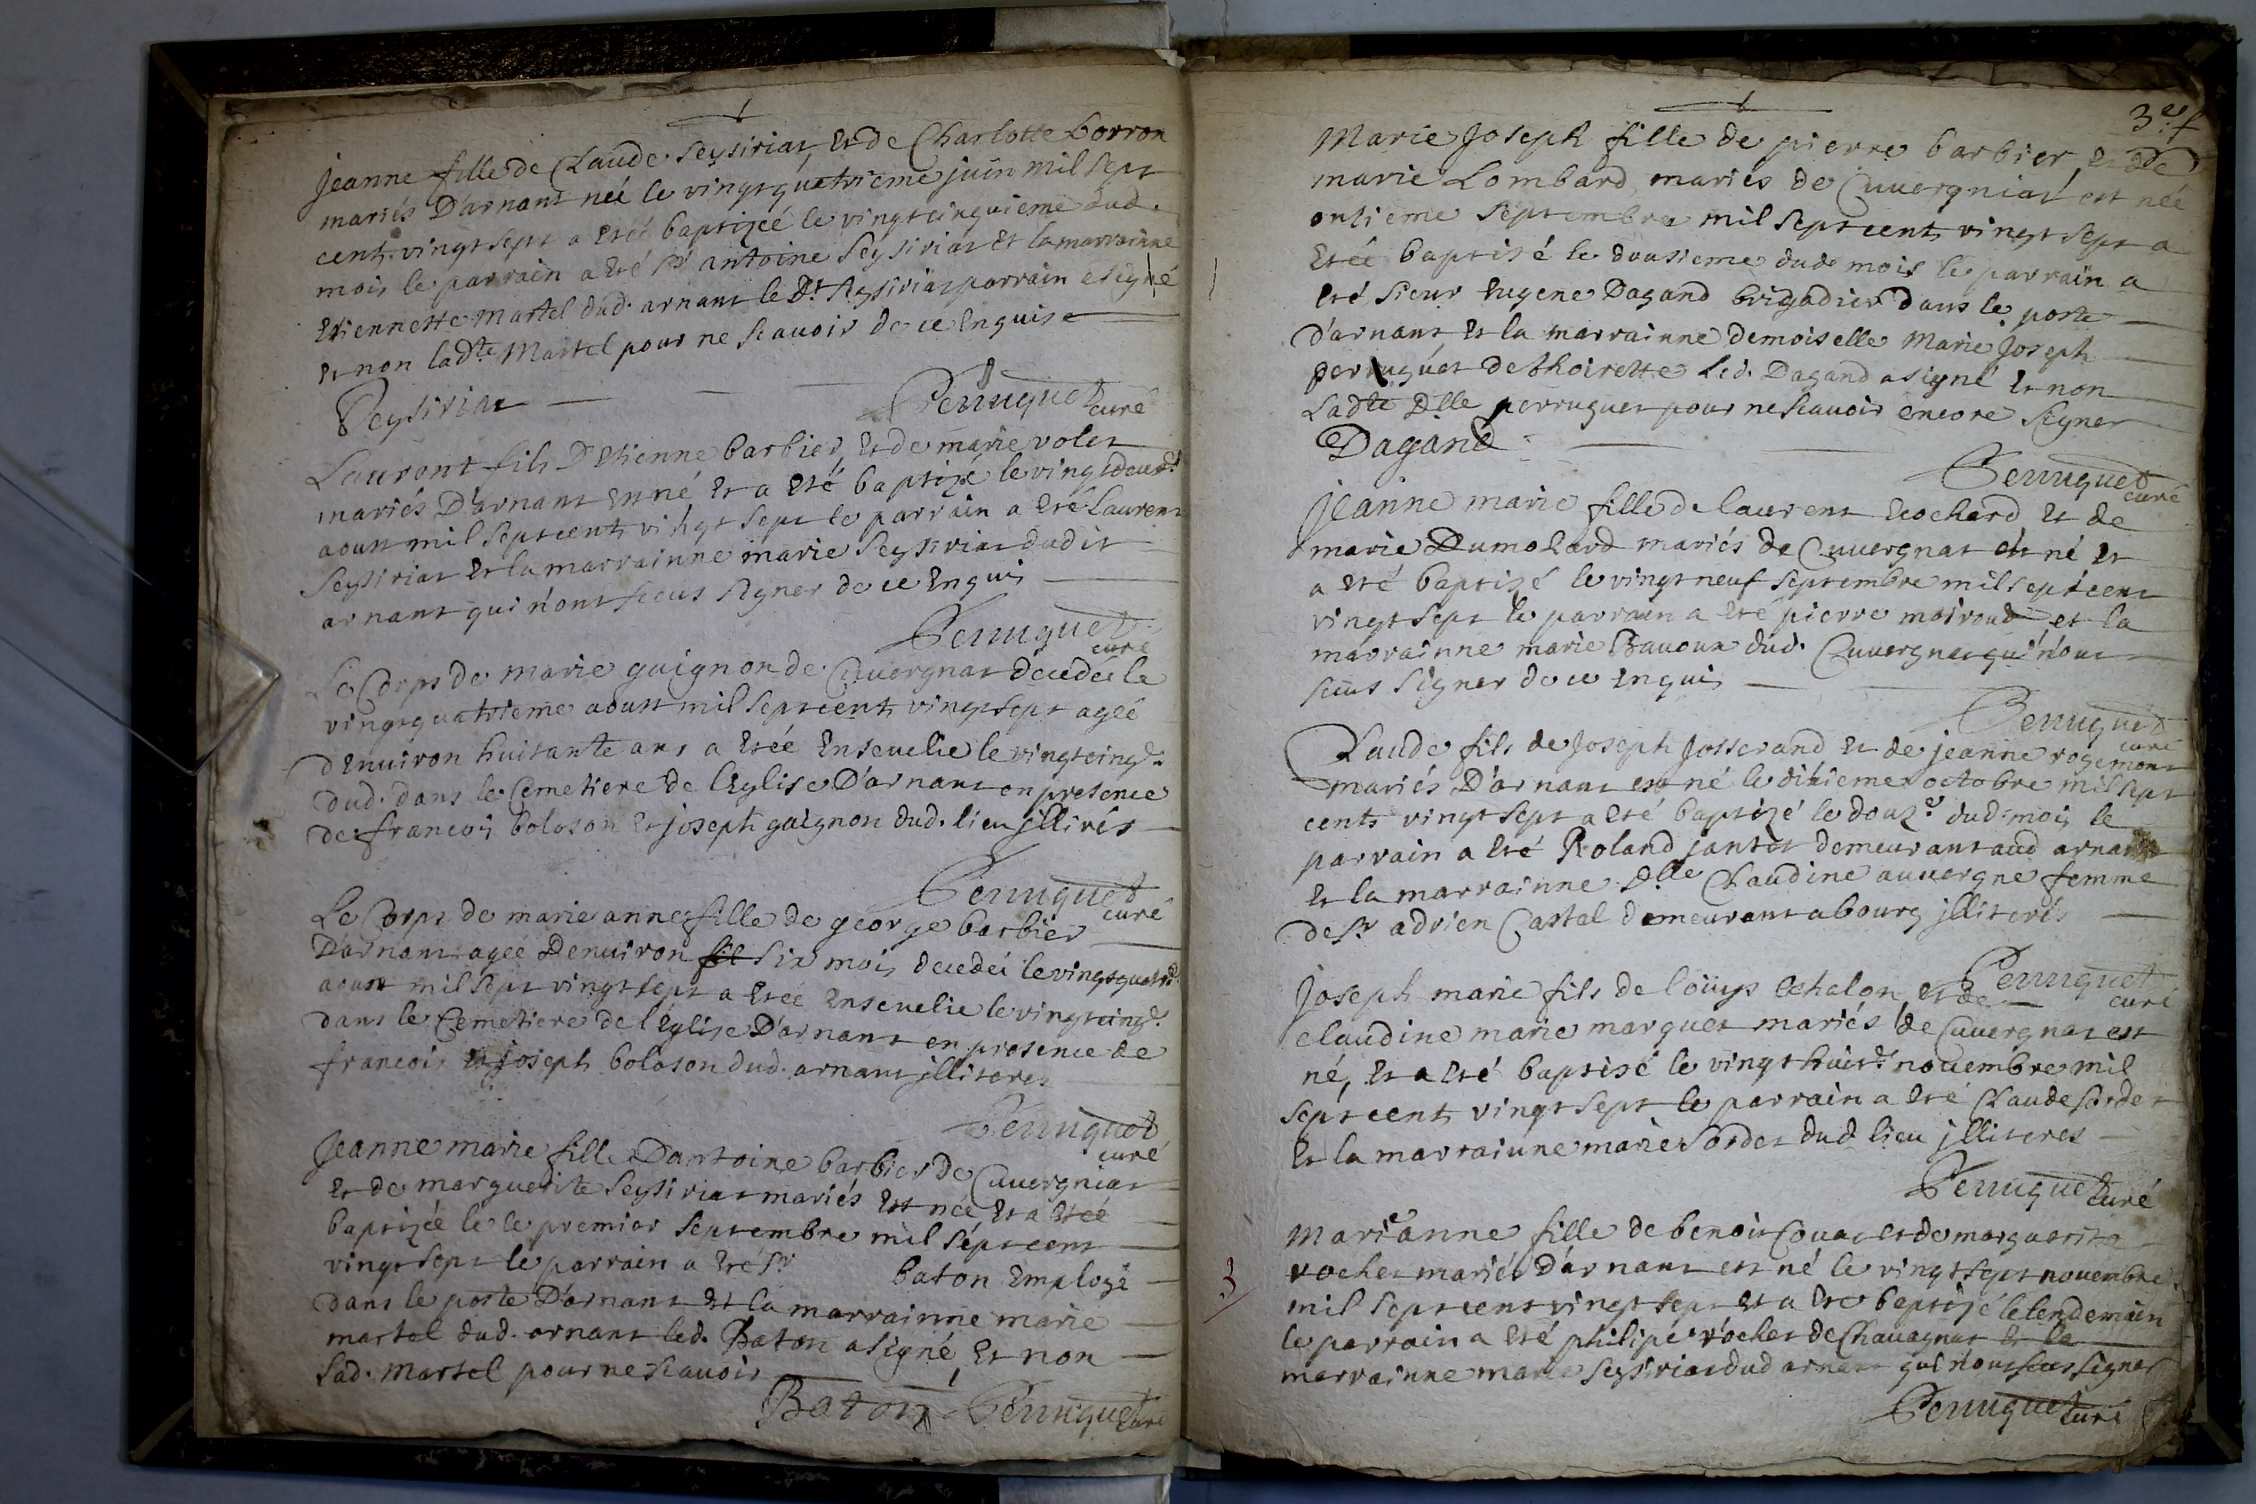 Jeanne fille de Claude Seysiriat, et de Charlotte Borron
mariés D'arnant neé le vingt quatrieme juin mil sept
cent vingt sept a etéé baptizéé le vingt cinquieme dud.
mois le parrain a eté Sr antoine Seysiriat et la marrainne
Etiennette martel dud. arnant le dt Seysiriat parrain a signé
et non ladte Martel pour ne scavoir de ce Enquise
Seysiriat
Perruquet curé
Laurent fils D'Etienne barbier, et de marie volet
mariés D'arnant en né et a eté baptizé le vingt deuxe
aoust mil sept cent vingt sept le parrain a eté Laurent
Seysiriat et la marrainne marie Seysiriat dudit
arnant qui n'ont sceus signer de ce Enquis
Perruquet
curé
Le Corps de marie guignon de Cuvergnat decedéé le
vingt quatrieme aoust mil sept cent vingt sept ageé
D'Enuiron huitante ans a etéé Enseuelie le vingt cinqe
dud. dans le Cemetiere de l'Eglise D'arnant en presence
de francois boloson et joseph guignon dud. lieu jllirés
Perruquet
curé
Le Corps de marie anne fille de george barbier
D'arnant ageé Denuiron six mois decedéé le vingt quatre
aoust mil sept vingt sept a etéé Enseuelie le vingt cinqe
dans le Cemetiere de l'Eglise D'arnant en presence de
francois et joseph boloson dud. arnant jlliteres
Perruquet
curé
Jeanne marie fille D'antoine barbier de Cuvergniat
et de marguerite Seysiriat mariés est néé et a etéé
baptizéé le le premier Septembre mil sept cent
vingt sept le parrain a eté Sr baton Employé
dans le poste D'arnant et la marrainne marie
martel dud. arnant led. Baton a signé, et non
lad. Martel pour ne scauoir
Baton Perruquet curé
3e f
Marie Joseph fille de pierre barbier, et de
marie Lombard mariés de Cuvergniat est néé
onsieme Septembre mil sept cent vingt sept a
etéé baptisé le dousieme dud. mois le parrain a
eté sieur Eugene Dagand brigadier dans le poste
d'arnant, et la marrainne demoiselle Marie Joseph
perruquet de thoirette led. Dagand a signé et non
Ladte Dlle perruquet pour ne scauoir encore signer
Dagand
Perruquet
curé
Jeanne marie fille de laurent Ecochard et de
marie Dumolard mariés de Cuvergnat est né et
a eté baptizé le vingt neuf Septembre mil sept cent
vingt sept le parrain a eté pierre moiroud et la
marrainne marie Bauoux dud. Cuvergnat qui n'ont
sceus signer de ce Enquis
Perruquet
curé
Claude fils de Joseph Josserand et de jeanne rogemont
mariés D'arnant est né le dixieme octobre mil sept
cent vingt sept a eté baptizé le douze dud. mois le
parrain a eté Roland jantet demeurant aud arnant
et la marrainne Dlle Claudine auvergne femme
de Sr adrien Castal demeurant a bourg jlliterés
Perruquet
curé
Joseph marie fils de loüys Echalon, et de
claudine marie marquet mariés de Cuvergnat est
né, et a eté baptisé le vingt huite nouembre mil
sept cent vingt sept le parrain a eté Claude Sordet
et la marrainne marie Sordet dud. lieu jlliteres
Perruquet curé
3
Marieanne fille de benoit Couat et de marguerite
rochet mariés D'arnant est né le vingt sept nouembre
mil sept cent vingt sept et a eté baptizé le lendemain
le parrain a eté philipe rochet de Chauagnat et la
marrainne marie Seysiriat dud arnant qui n'ont sceus signer
Perruquet curé